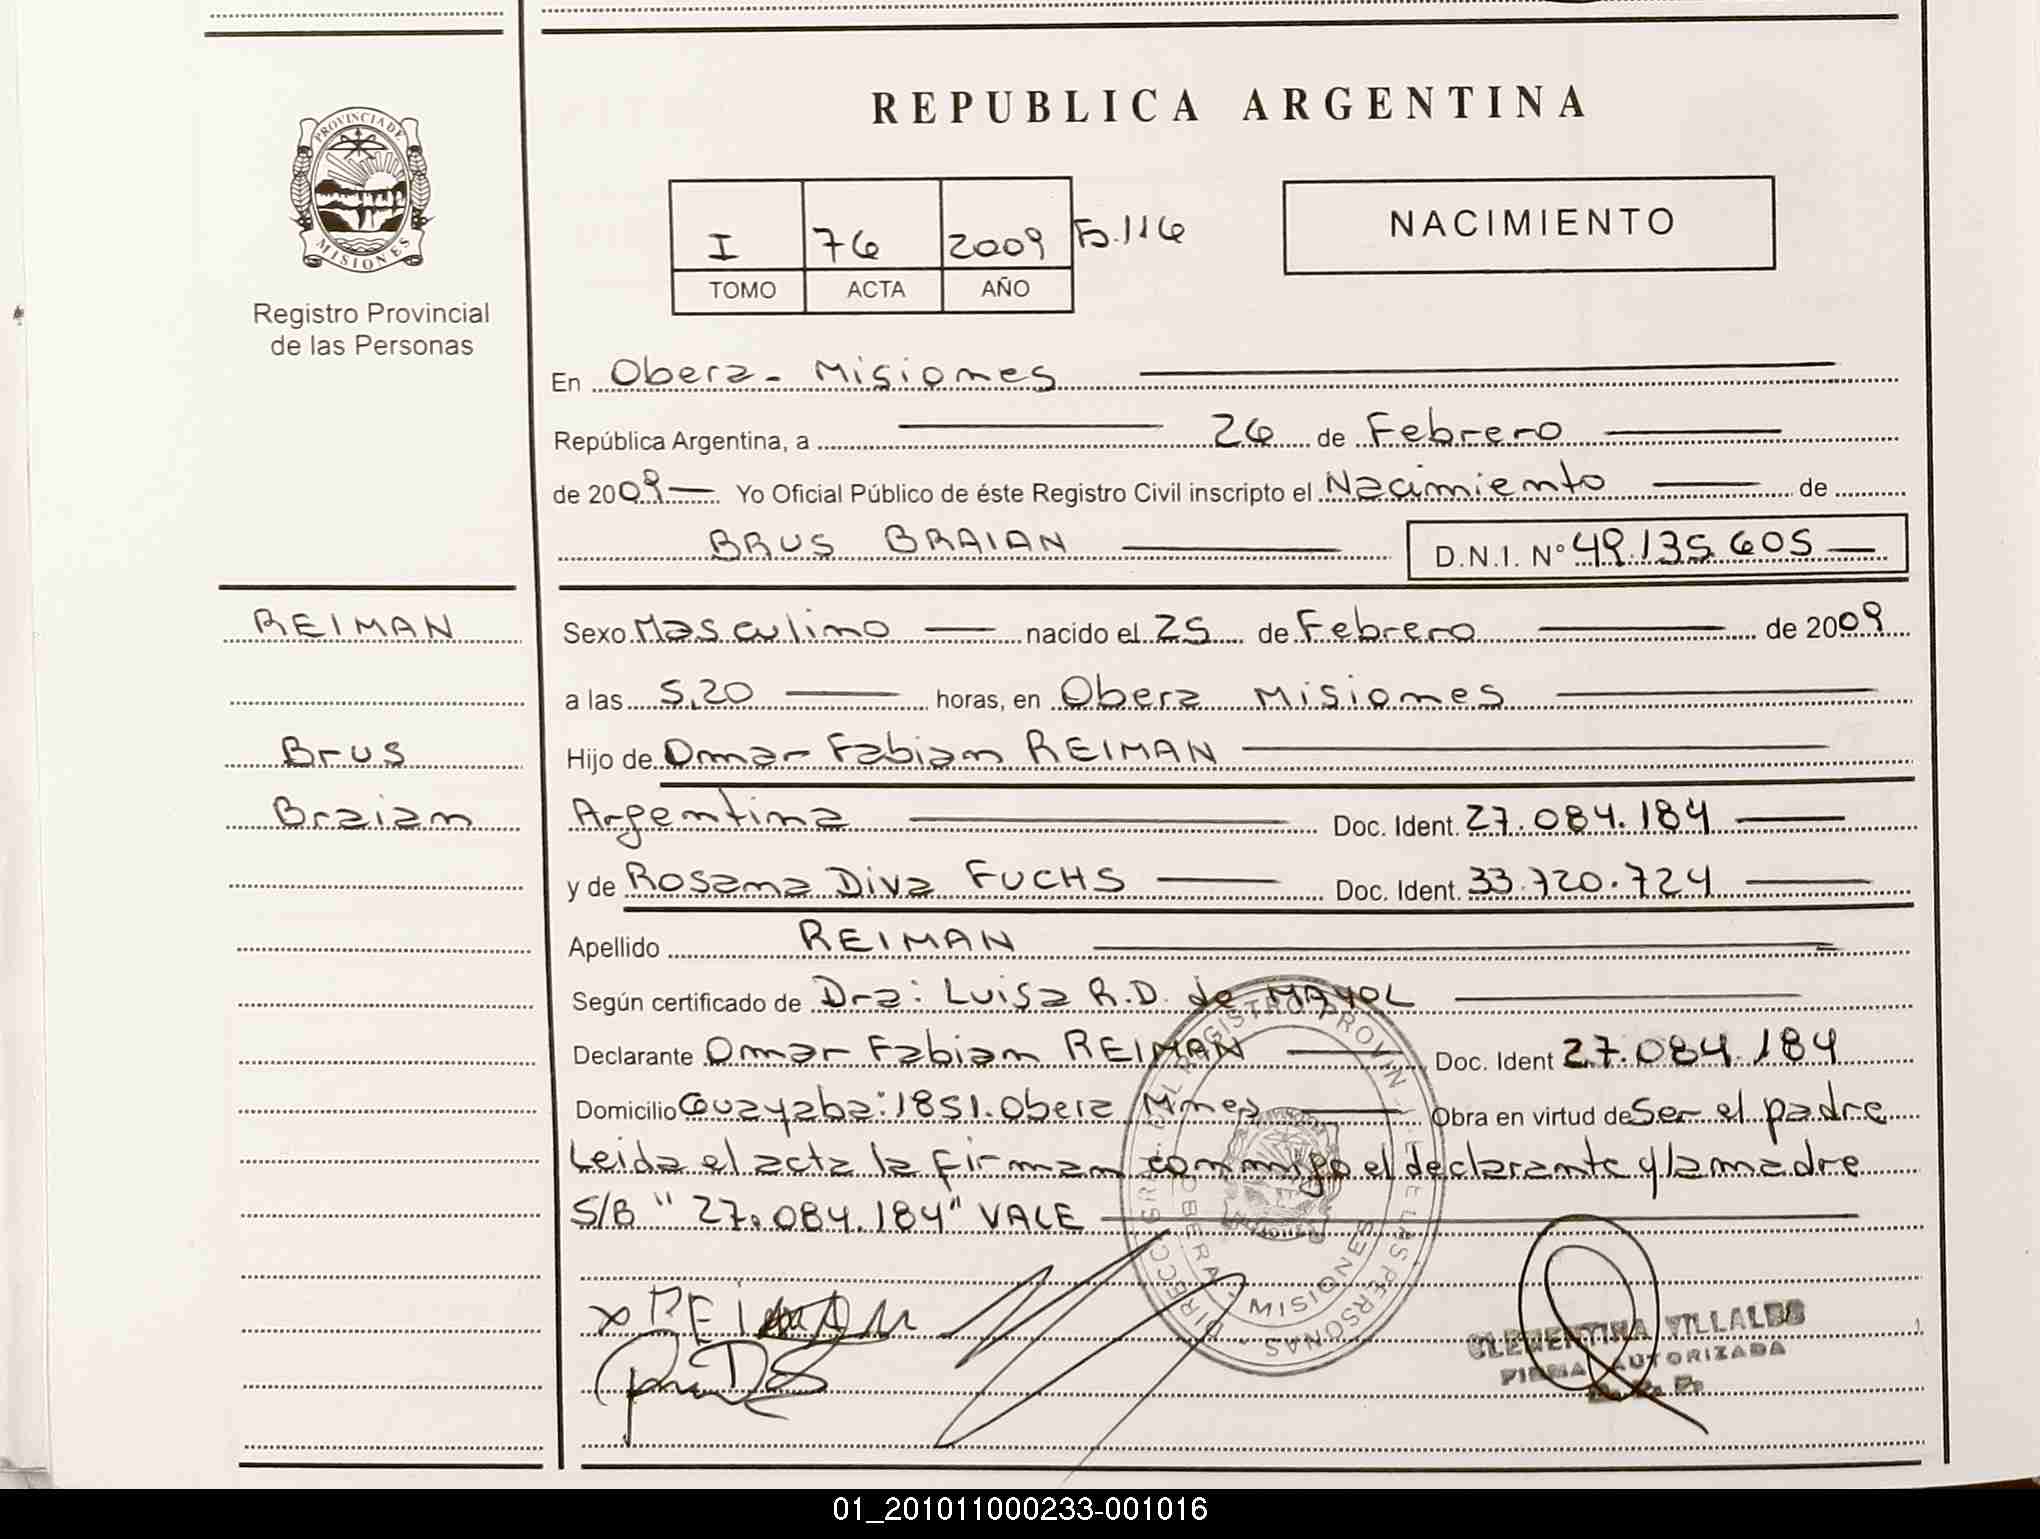 REPUBLICA ARGENTINA
PROVINCIA DE
MISIONES
Registro Provincial
de las Personas
I 76 2009 Fo. 116
TOMO ACTA AÑO
NACIMIENTO
En Obera - Misiones
República Argentina, a 26 de Febrero
de 2009 Yo Oficial Público de éste Registro Civil inscripto el Nacimiento de
BRUS BRAIAN D.N.I. N° 49.135.605
REIMAN
Brus
Braian
Sexo Masculino nacido el 25 de Febrero de 2009
a las 5,20 horas, en Obera Misiones
Hijo de Omar Fabian REIMAN
Argentina Doc. Ident. 27.084.184
y de Rosana Diva FUCHS Doc. Ident. 33.720.724
Apellido REIMAN
Según certificado de Dra: Luisa R.D. de MAYOL
Declarante Omar Fabian REIMAN Doc. Ident 27.084.184
Domicilio Guayaba: 1851. Obera Mnes Obra en virtud de Ser el padre
Leida el acta la firman conmigo el declarante y la madre
S/B "27.084.184" VALE
x REIMAN
CLEMENTINA VILLALBA
FIRMA AUTORIZADA
OBERA MISIONES
01_201011000233-001016